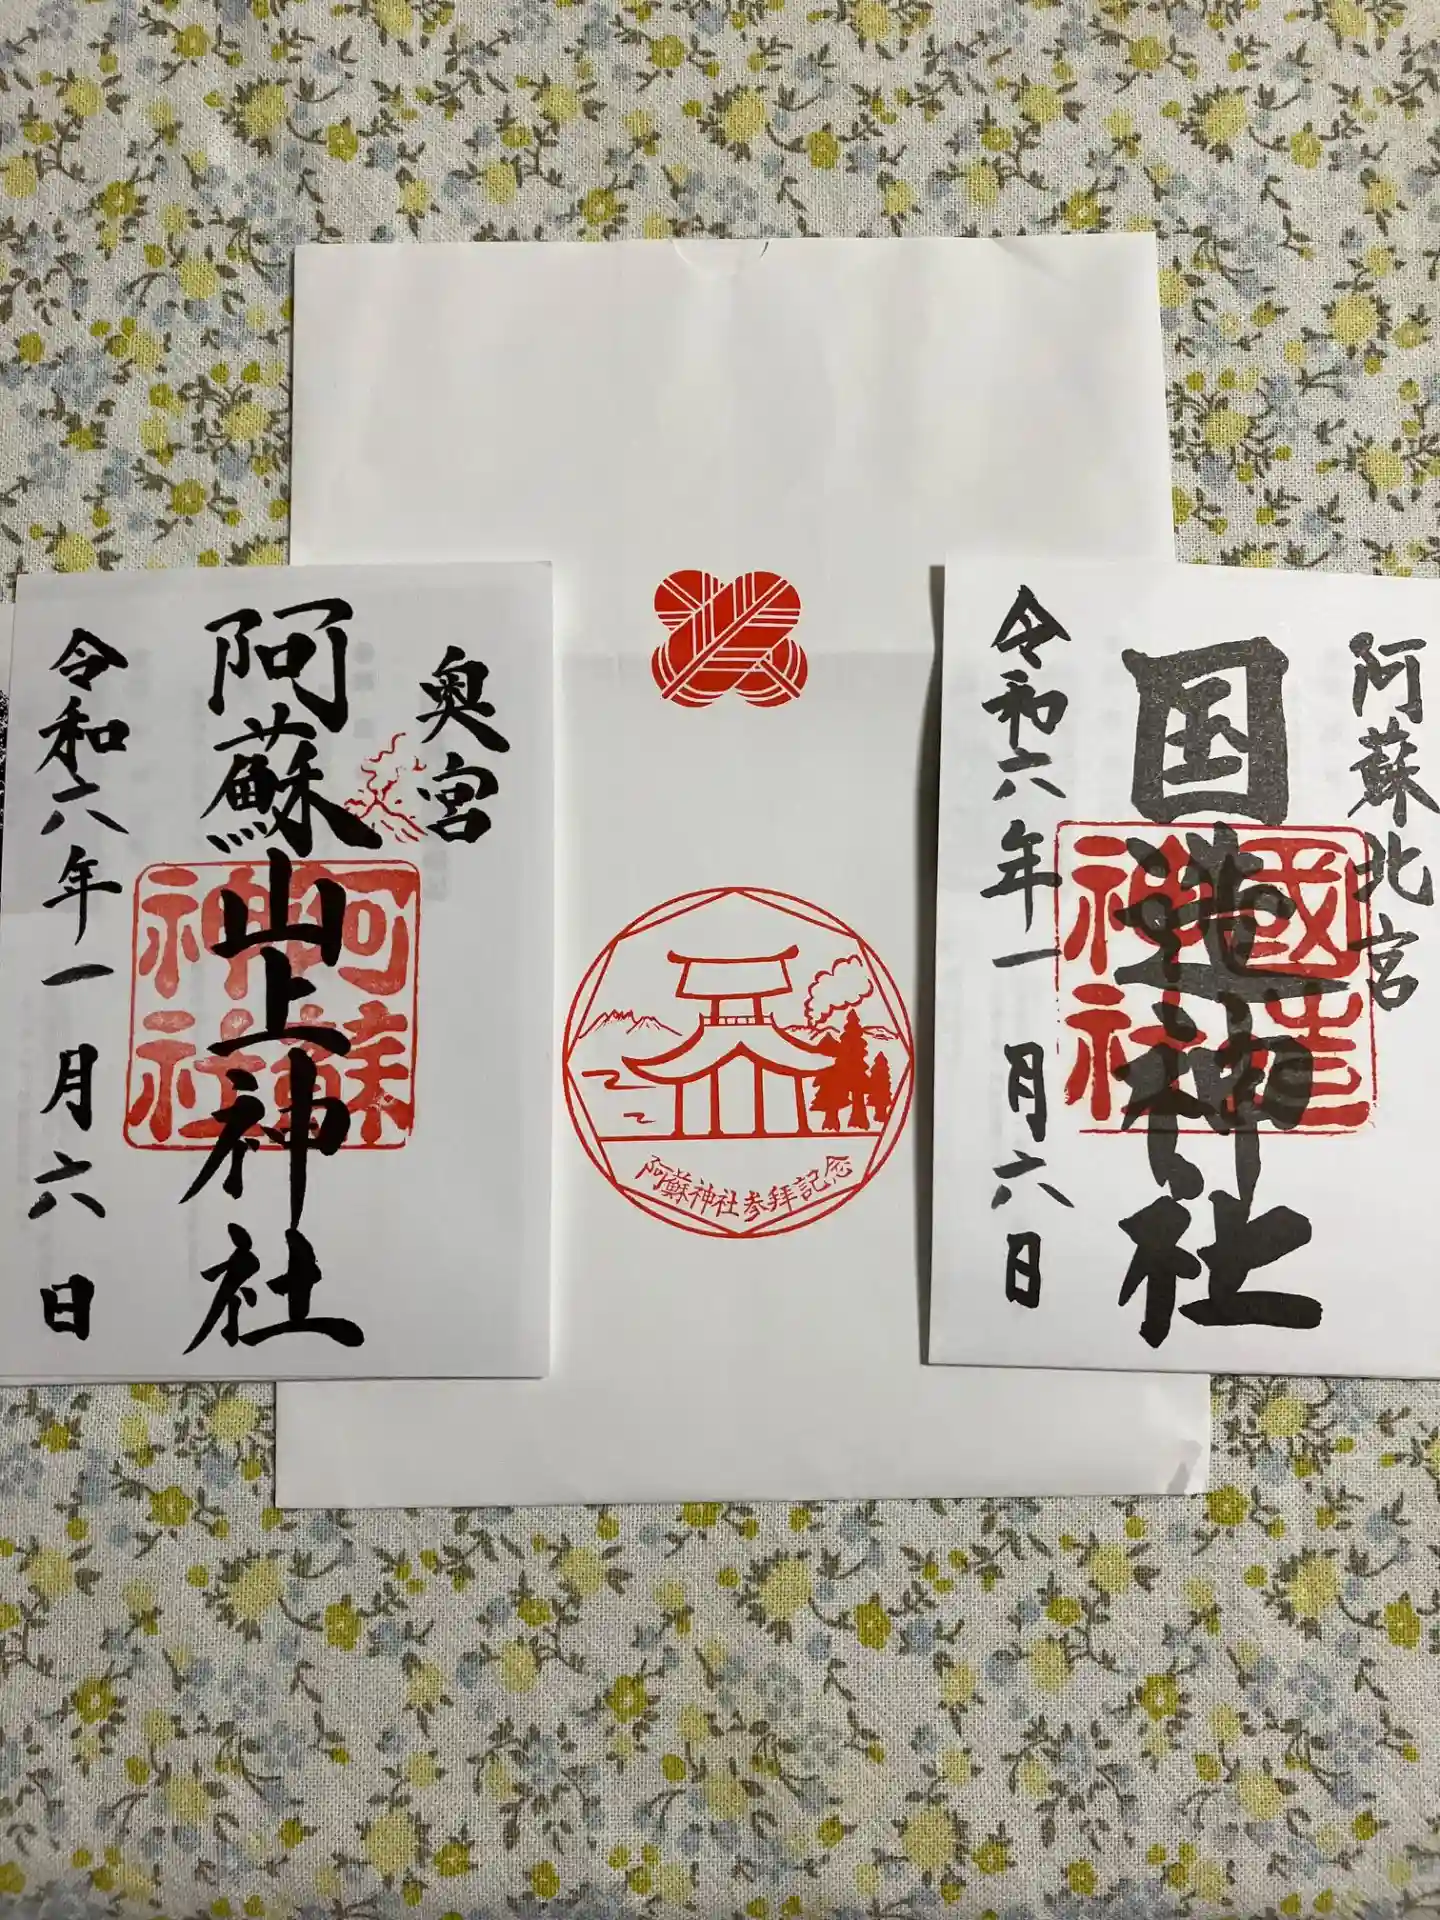 奥宮
阿蘇山上神社
阿蘇神社
令和六年一月六日
阿蘇神社参拝記念
阿蘇北宮
国造神社
國造神社
令和六年一月六日